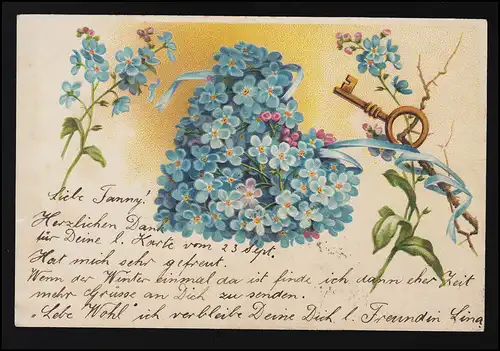 Liebe Fanny!
Herzlichen Dank
für Deine l. Karte vom 23 Sept.
Hat mich sehr gefreut.
Wenn der Winter einmal da ist finde ich dann eher Zeit
mehr Grüsse an Dich zu senden.
„Lebe Wohl" ich verbleibe Deine Dich l. Freundin Lina